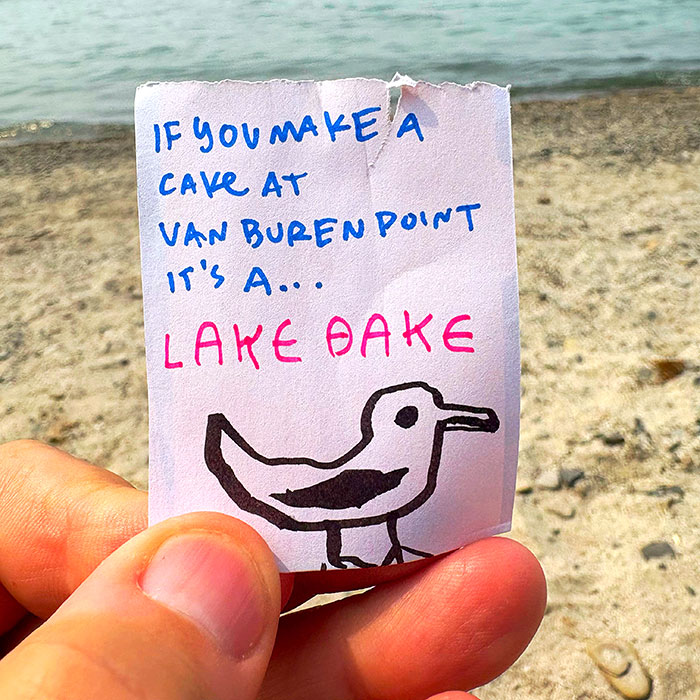 IF YOU MAKE A
CAKe AT
VAN BUREN POINT
IT'S A...
LAKE BAKE